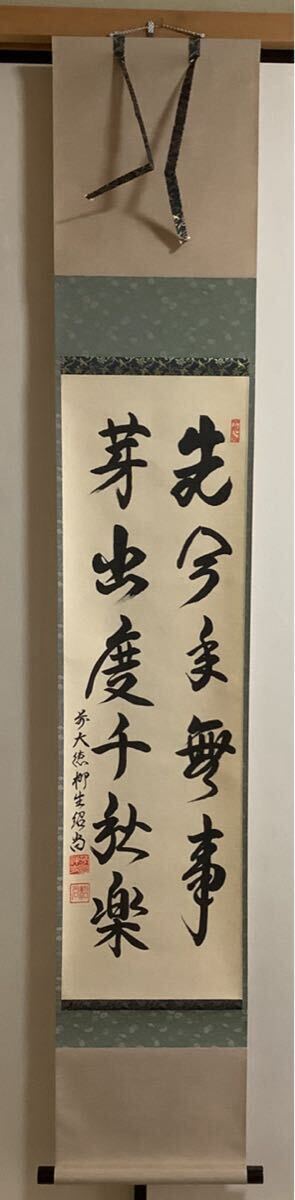 先今年無事
芽出度千秋楽
前大徳柳生紹尚